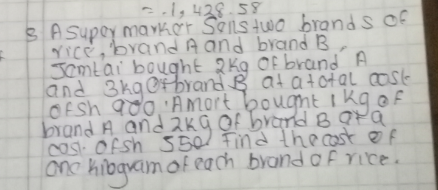 = .1, 428.58
8 A supermarker Sells two brands of
rice, brand A and brand B,
Jamtai bought 2kg Of brand A
and 3kg Of brand B at a total cost
of sh 900. Amort bought 1kg of
brand A and 2kg of brand B at a
cost of sh 550 Find the cost of
one kilogram of each brand of rice.